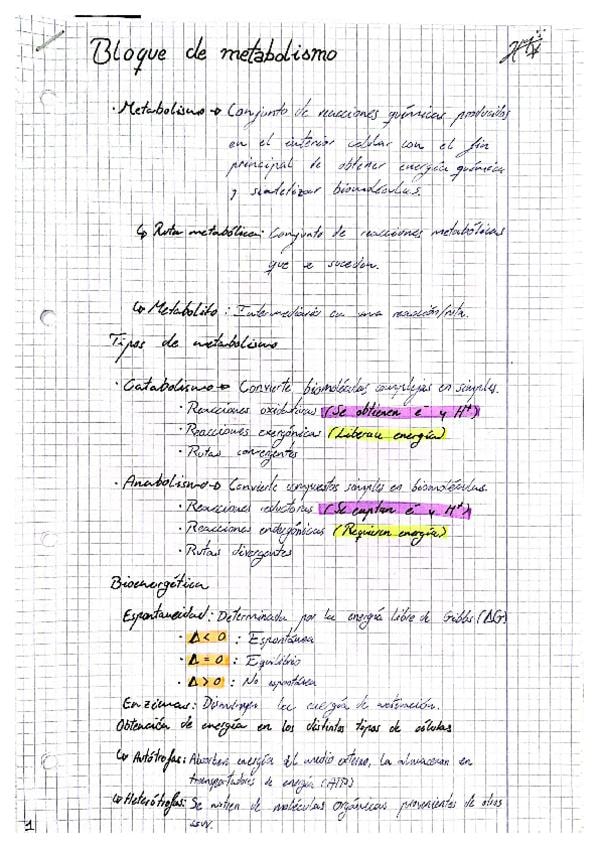 Bloque de metabolismo
· Metabolismo → Conjunto de reacciones químicas producidas
en el interior celular con el fin
principal de obtener energía química
y sintetizar biomoléculas.
↳ Ruta metabólica: Conjunto de reacciones metabólicas
que se suceden.
↳ Metabolito: Intermediario en una reacción/ruta.
Tipos de metabolismo
· Catabolismo → Convierte biomoléculas complejas en simples.
· Reacciones oxidativas (Se obtienen e⁻ y H⁺)
· Reacciones exergónicas (Liberan energía)
· Rutas convergentes
· Anabolismo → Convierte compuestos simples en biomoléculas.
· Reacciones reductoras (Se captan e⁻ y H⁺)
· Reacciones endergónicas (Requieren energía)
· Rutas divergentes
Bioenergética
Espontaneidad: Determinada por la energía libre de Gibbs (ΔG)
· Δ < 0 : Espontánea
· Δ = 0 : Equilibrio
· Δ > 0 : No espontánea
Enzimas: Disminuyen la energía de activación.
Obtención de energía en los distintos tipos de células
↳ Autótrofas: Absorben energía del medio externo, la almacenan en
transportadores de energía (ATP)
↳ Heterótrofas: Se nutren de moléculas orgánicas provenientes de otros
1